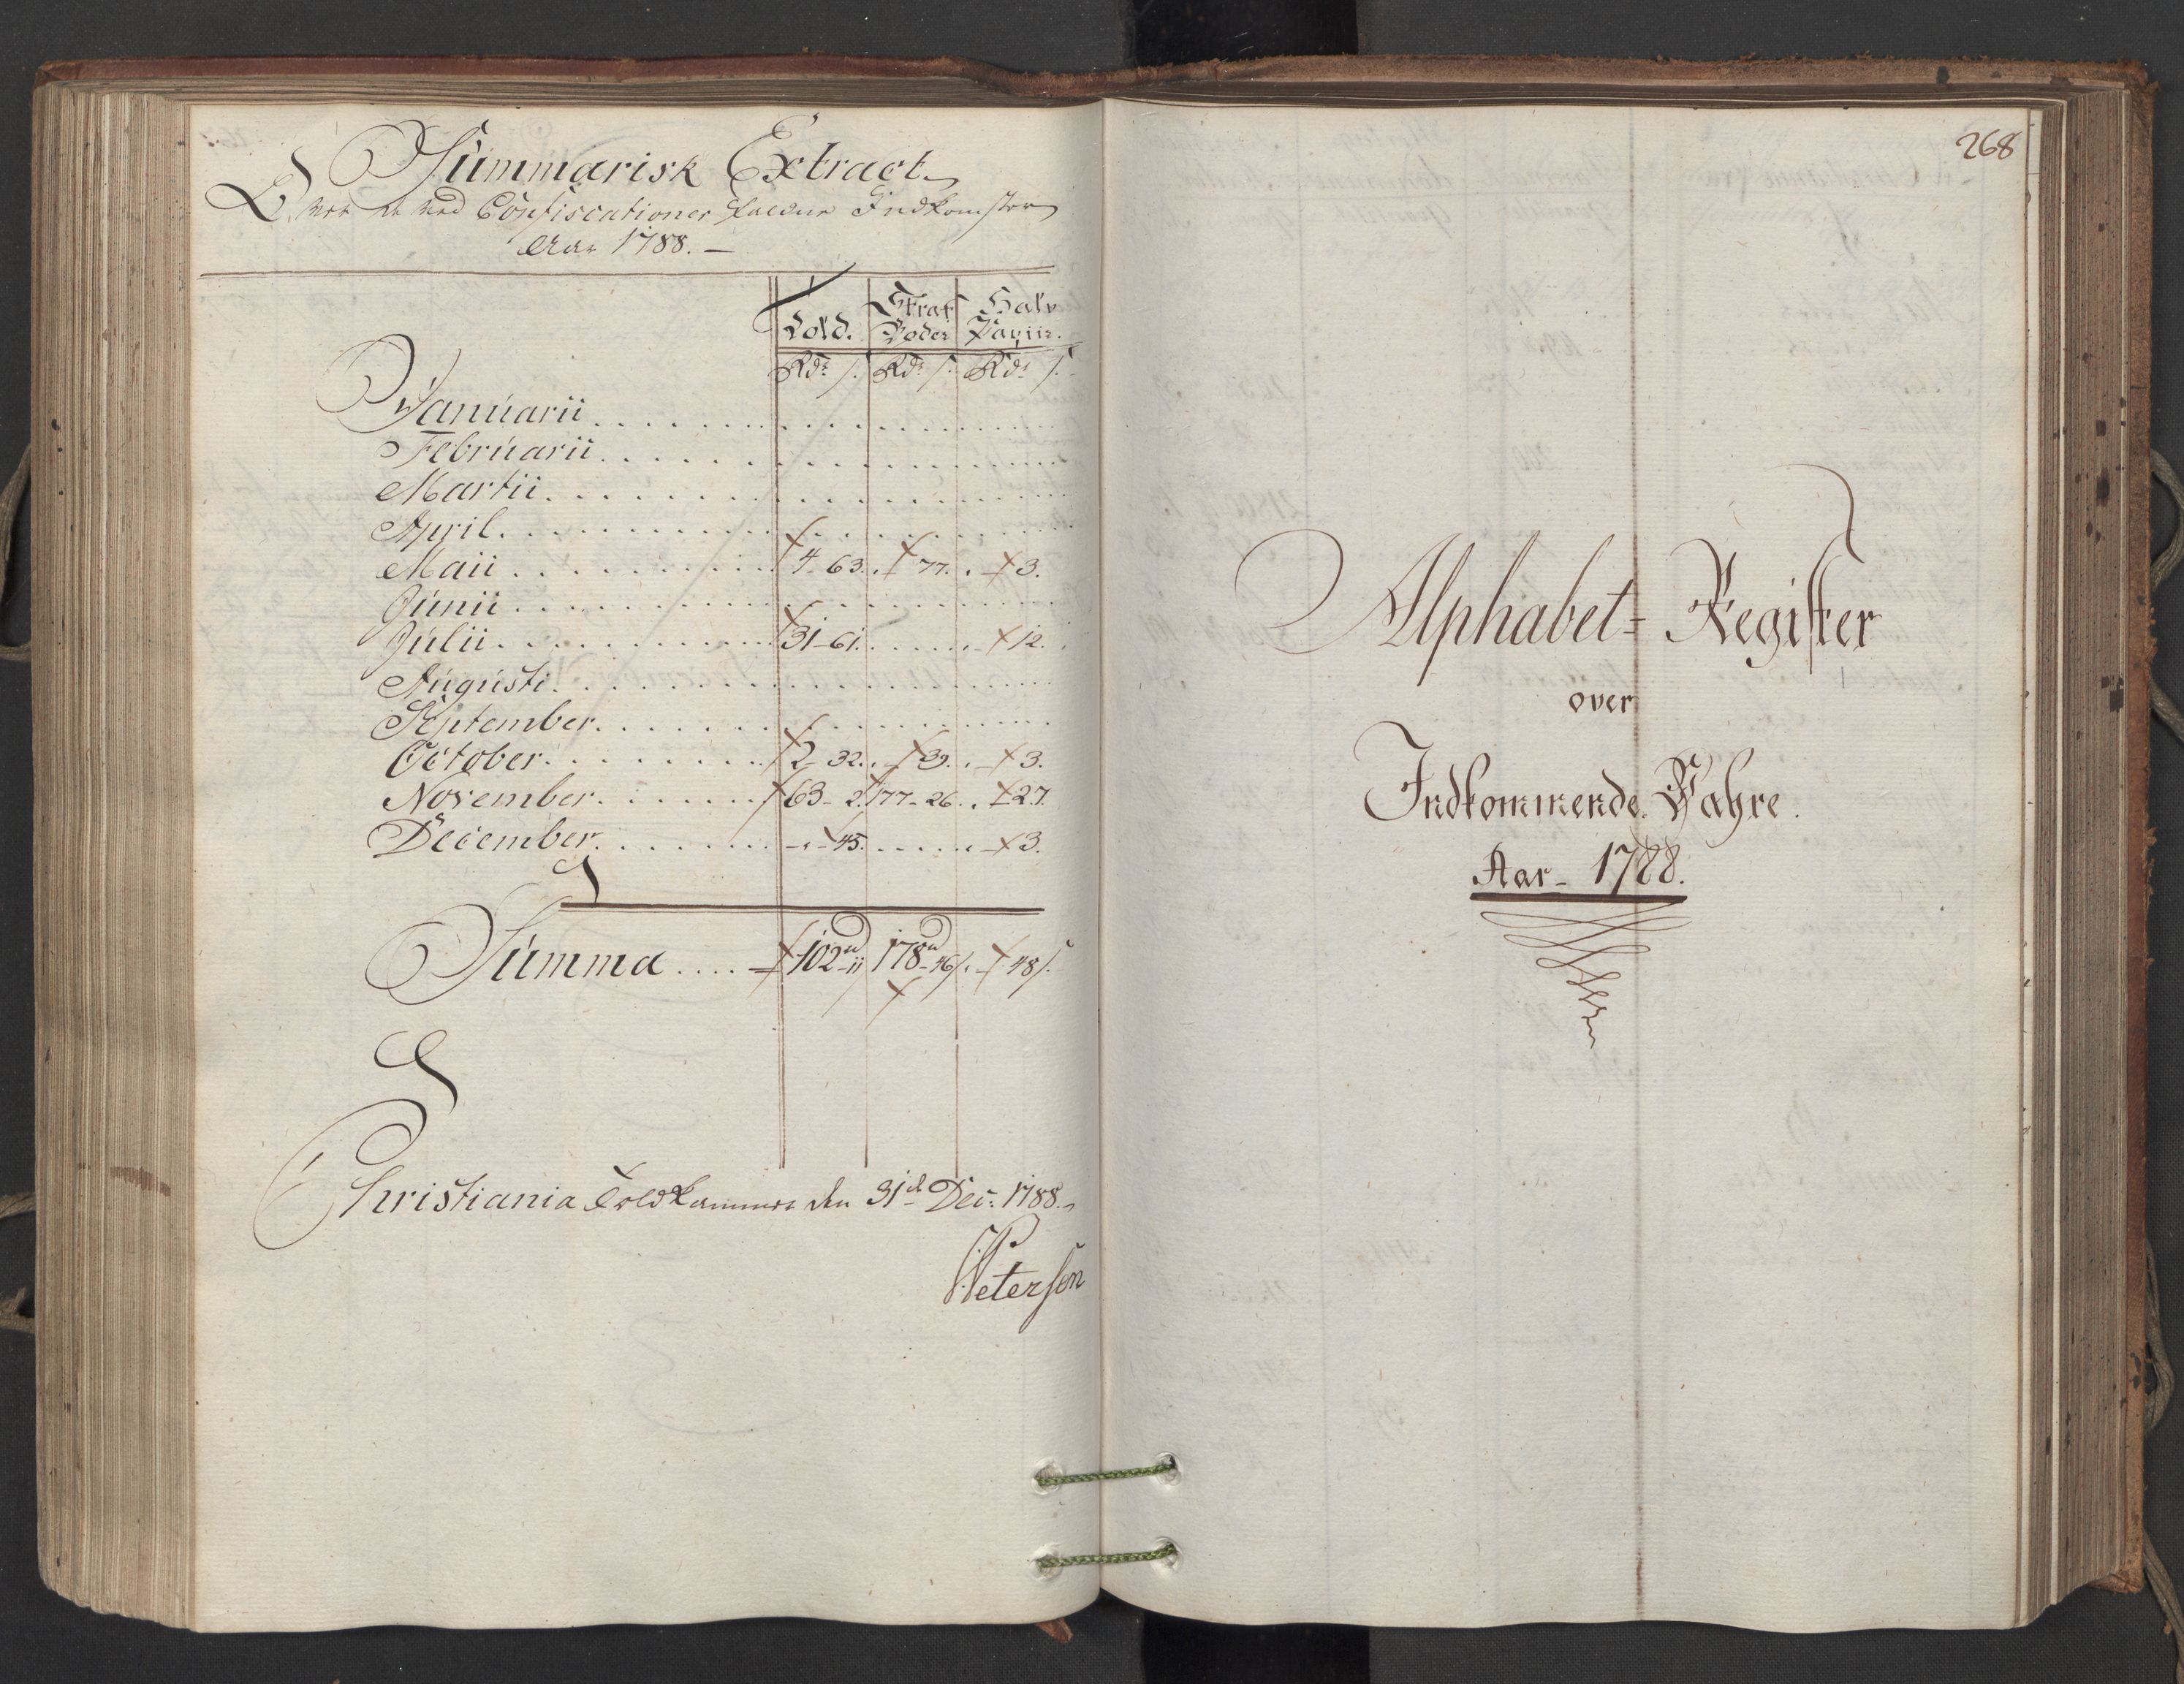 Summarisk Extract
Over de ved Confiscationer faldne Indkomster
Aar 1788. —
Told. Straf Halv
Bøder Pagiir.
Rdr ſ. Rdr ſ. Rdr ſ.
Januarii
Februarii
Martii
April
Maii 4 - 63. 77. 3.
Junii
Julii 31 - 61. 12.
Augusti
September
October 2 - 32. 39. 3.
November 63 - 2. 177 - 26. 27.
December 45. 3.
Summa 102 - 11 178 - 46ſ. 48ſ.
Christiania Toldkammer den 31de Dec: 1788.
Peterson
268
Alphabet = Register
over
Indkommende Vahre.
Aar - 1788.